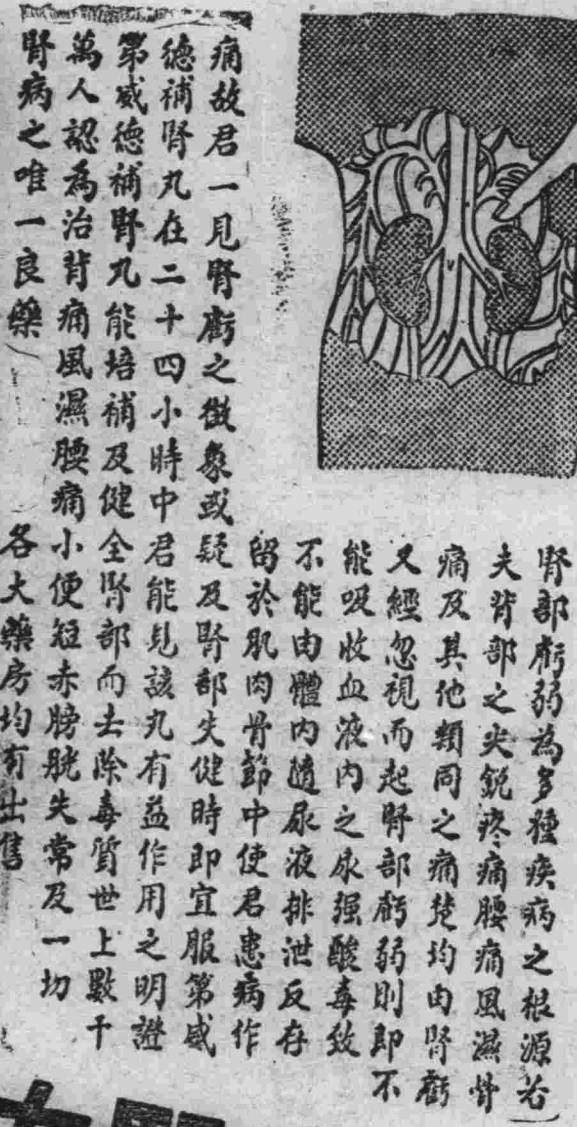 腎部虧弱為多種疾病之根源若
夫背部之尖銳疼痛腰痛風濕骨
痛及其他類同之痛楚均由腎虧
又經忽視而起腎部虧弱則即不
能吸收血液內之尿强酸毒致
不能由體內隨尿液排泄反存
留於肌肉骨節中使君患病作
痛故君一見腎虧之徵象或疑及腎部失健時即宜服第威
德補腎丸在二十四小時中君能見該丸有益作用之明證
第威德補腎丸能培補及健全腎部而去除毒質世上數千
萬人認為治背痛風濕腰痛小便短赤膀胱失常及一切
腎病之唯一良藥
各大藥房均有出售